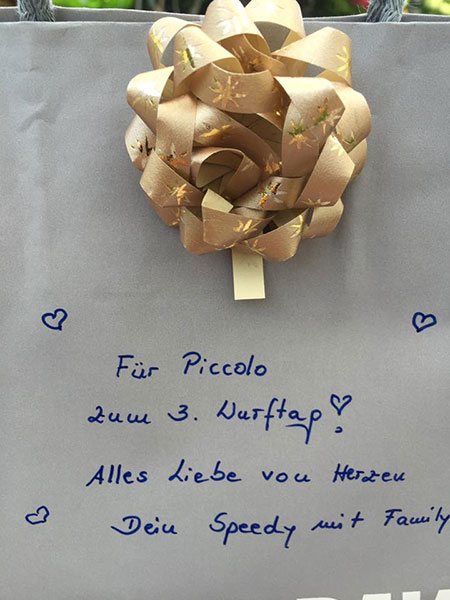 Für Piccolo
zum 3. Wurftag!
Alles Liebe von Herzen
Dein Speedy mit Family